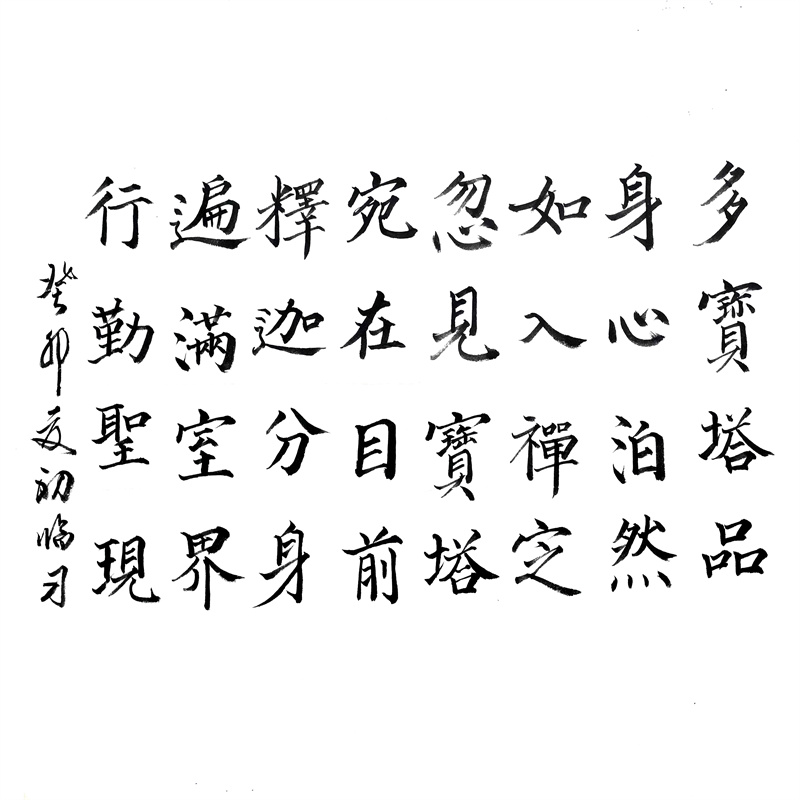 多寶塔品
身心泊然
如入禪定
忽見寶塔
宛在目前
釋迦分身
遍滿室界
行勤聖現
癸卯夏初臨習